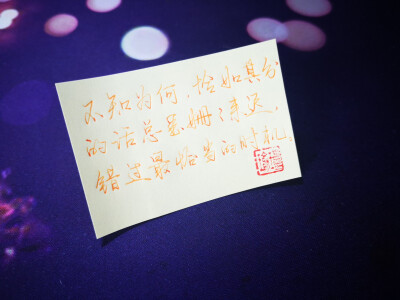 不知为何，恰如其分
的话总是姗姗来迟，
错过最恰当的时机。